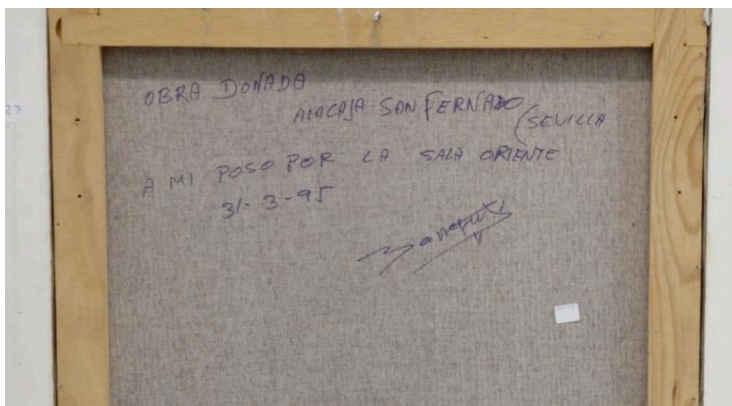 OBRA DONADA
ALACAJA SAN FERNADO (SEVILLA
A MI POSO POR LA SALA ORIENTE
31-3-95
27